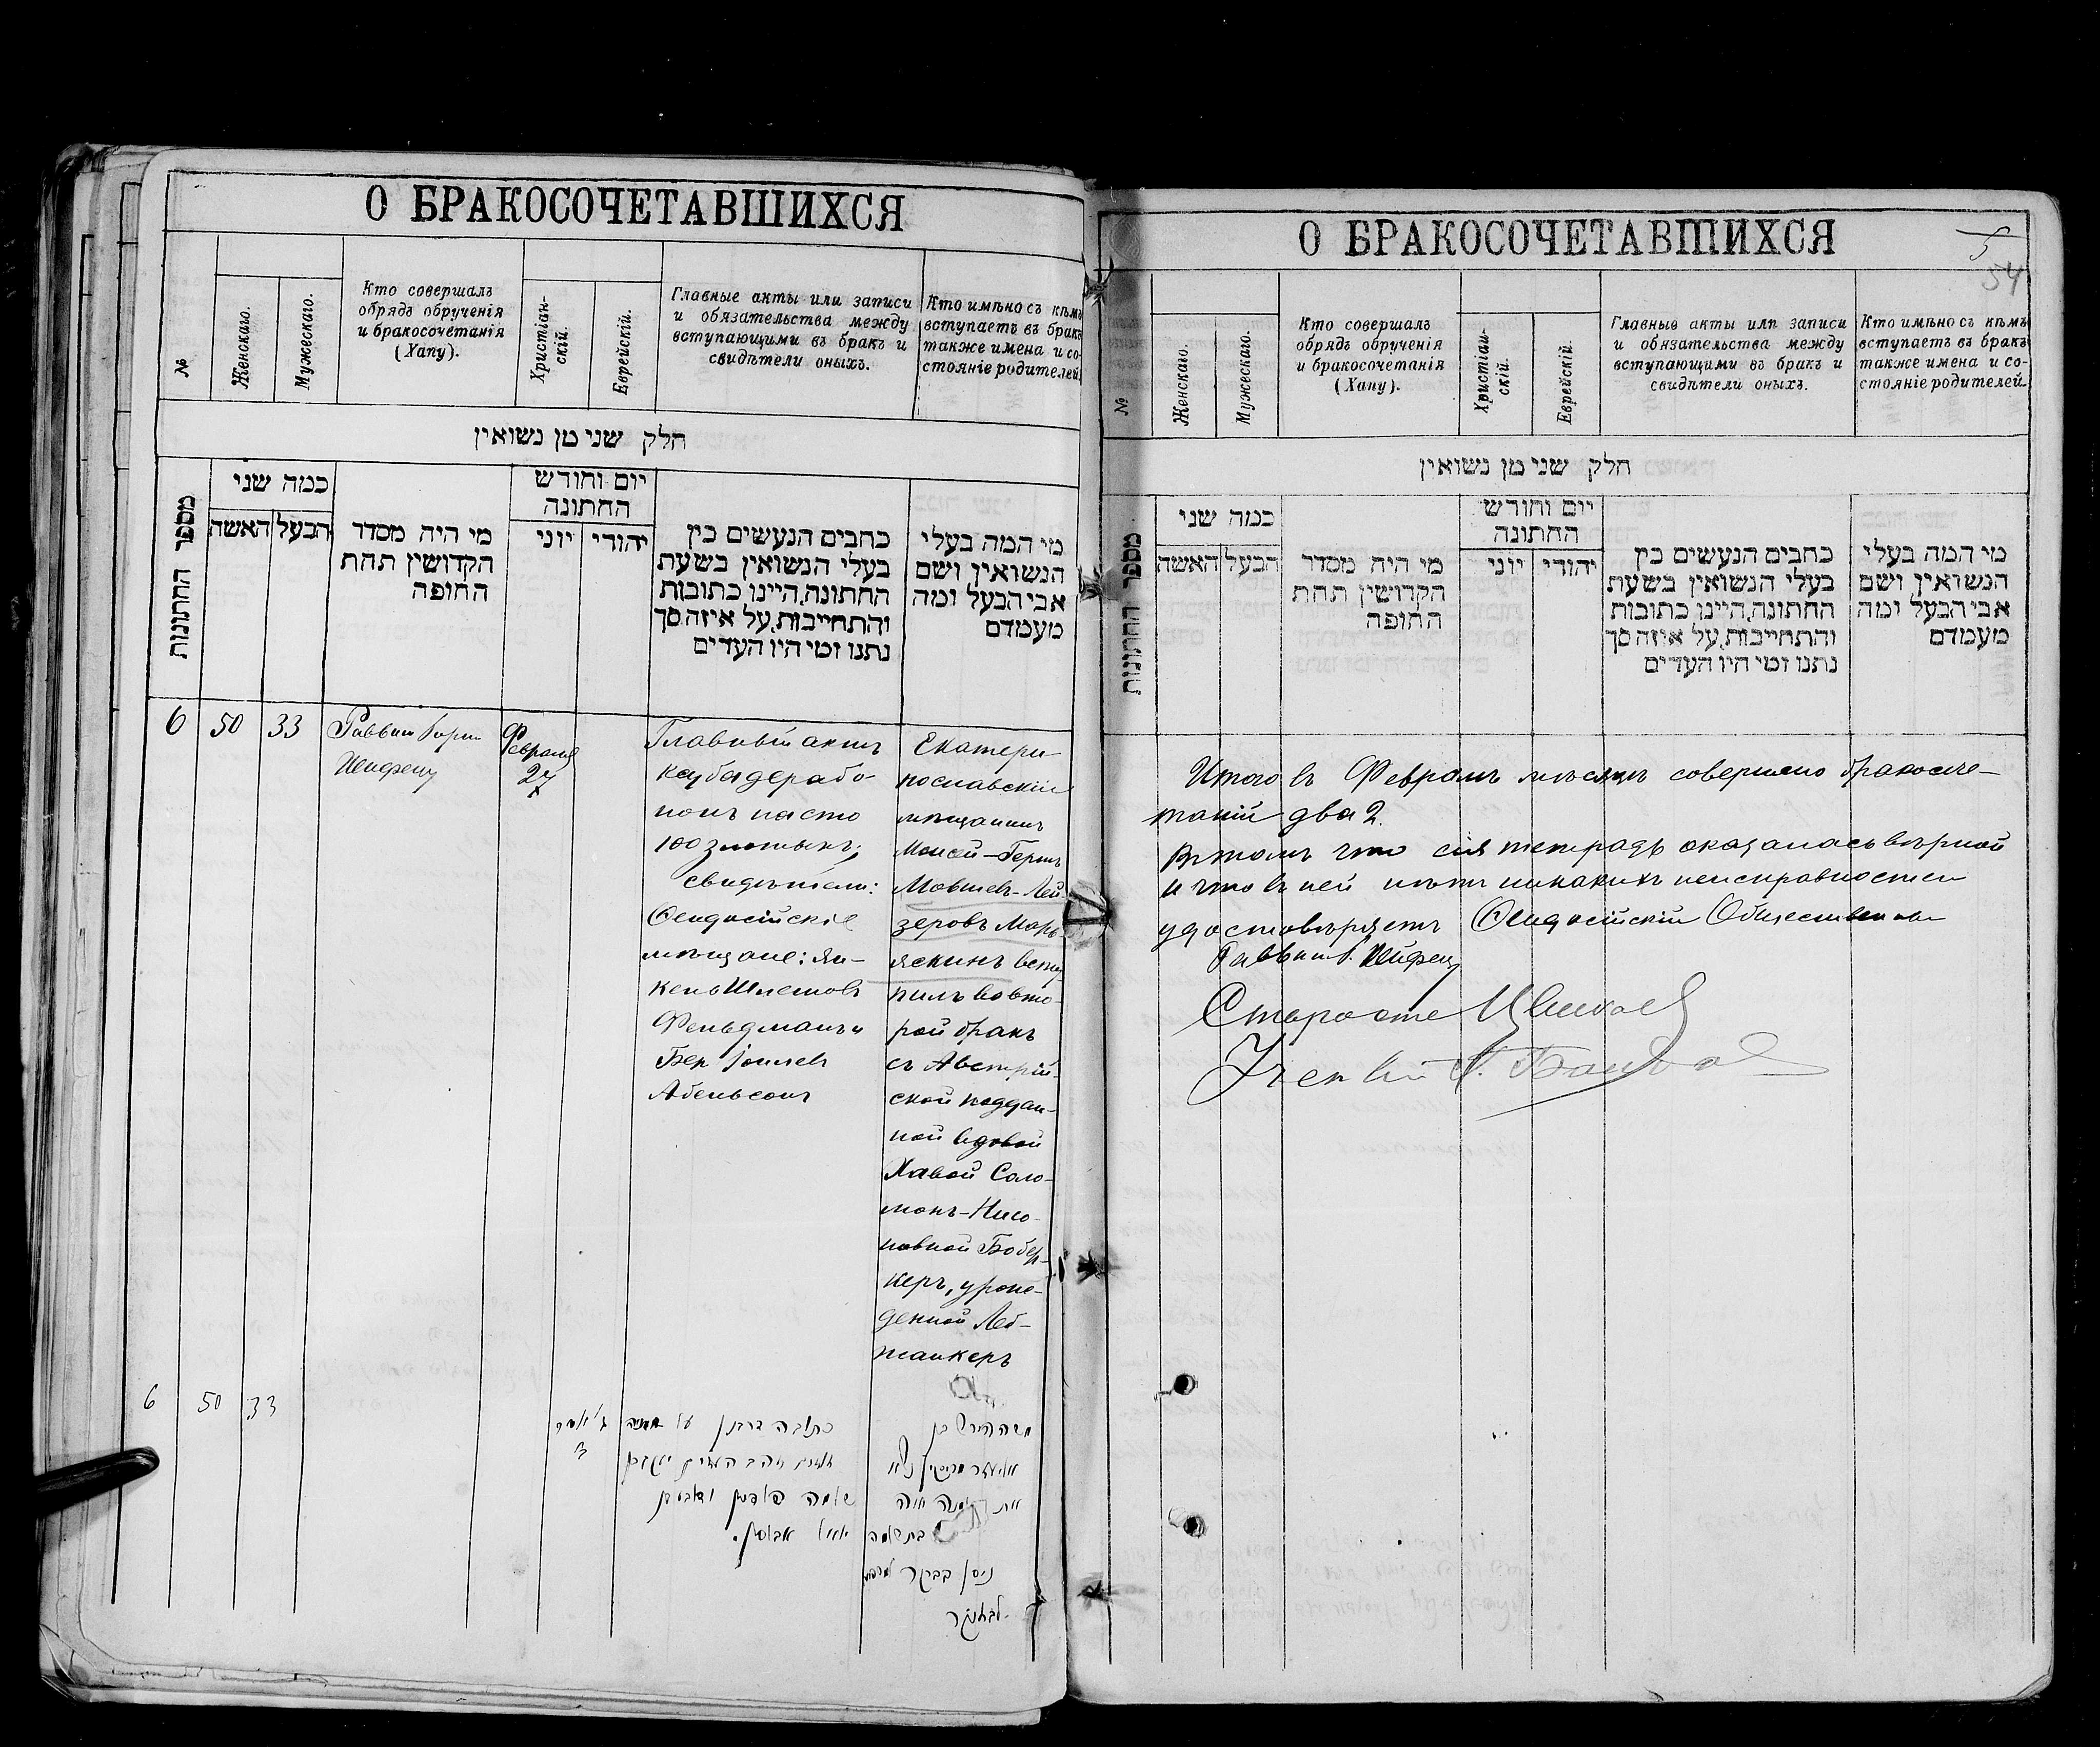 О БРАКОСОЧЕТАВШИХСЯ
№
Женскаго.
Мужескаго.
Кто совершалъ
обрядъ обрученія
и бракосочетанія
(Хапу).
Христіан-
скій.
Еврейскій.
Главные акты или записи
и обязательства между
вступающими въ бракъ и
свидѣтели оныхъ.
Кто имѣно съ кѣмъ
вступаетъ въ бракъ
также имена и со-
стояніе родителей.
חלק שני מן נשואין
מספר החתונות
כמה שני
האשה הבעל
מי היה מסדר
הקדושין תחת
החופה
יום וחודש
החתונה
יוני יהודי
כתבים הנעשים בין
בעלי הנשואין בשעת
החתונה, היינו כתובות
והתחייבות, על איזה סך
נתנו ומי היו העדים
מי המה בעלי
הנשואין ושם
אבי הבעל ומה
מעמדם
6 50 33
Раввин
Шейфецъ
Февраля
27
Главный актъ
нонъ на сто
100 злотыхъ;
свидѣтели:
Ѳеодосійскіе
мѣщане: Ян-
кель Шлемовъ
Фельдманъ и
Бер Іоилевъ
Абельсонъ
Екатери-
нославскій
мѣщанинъ
Моисей-Гершъ
Мовшевъ-Лей-
зеровъ Марь-
яскинъ всту-
пилъ во вто-
рой бракъ
съ Австрій-
ской поддан-
ной вдовой
Хавой Соло-
монъ-Нисо-
новной Бобер-
керъ, урож-
денной Леб-
танкеръ
6 50 33
כתובה דרבנן על
משה הירש בן
בת שלמה
ניסן
О БРАКОСОЧЕТАВШИХСЯ
5
54
№
Женскаго.
Мужескаго.
Кто совершалъ
обрядъ обрученія
и бракосочетанія
(Хапу).
Христіан-
скій.
Еврейскій.
Главные акты или записи
и обязательства между
вступающими въ бракъ и
свидѣтели оныхъ.
Кто имѣно съ кѣмъ
вступаетъ въ бракъ
также имена и со-
стояніе родителей.
חלק שני מן נשואין
מספר החתונות
כמה שני
האשה הבעל
מי היה מסדר
הקדושין תחת
החופה
יום וחודש
החתונה
יוני יהודי
כתבים הנעשים בין
בעלי הנשואין בשעת
החתונה, היינו כתובות
והתחייבות, על איזה סך
נתנו ומי היו העדים
מי המה בעלי
הנשואין ושם
אבי הבעל ומה
מעמדם
Итого въ Февралѣ мѣсяцѣ совершено бракосоче-
таній два 2.
Въ томъ что сія тетрадь оказалась вѣрной
и что въ ней нѣтъ никакихъ неисправностей
удостовѣряетъ Ѳеодосійскій Общественный
Раввинъ Шейфецъ
Староста